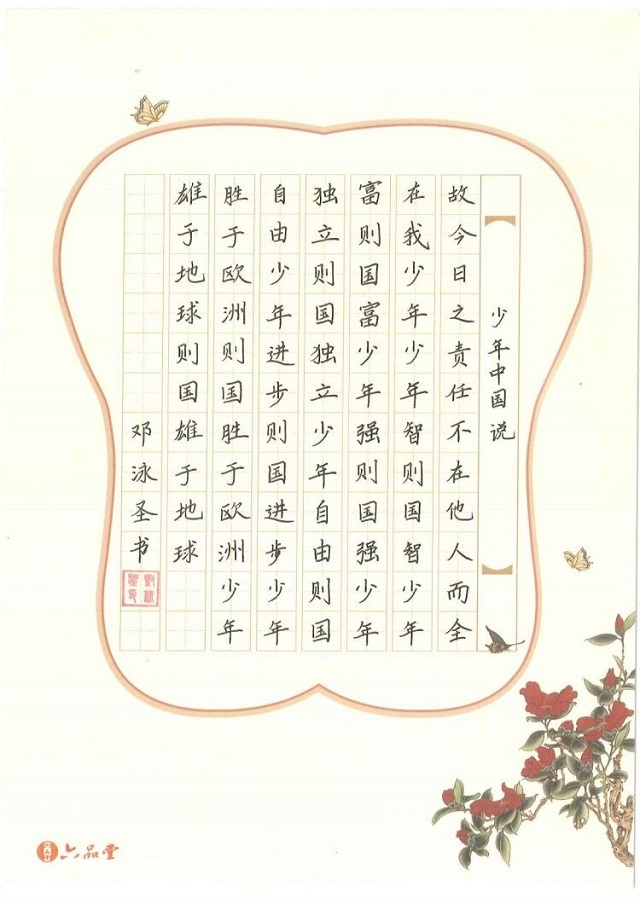 少年中国说
故今日之责任不在他人而全
在我少年少年智则国智少年
富则国富少年强则国强少年
独立则国独立少年自由则国
自由少年进步则国进步少年
胜于欧洲则国胜于欧洲少年
雄于地球则国雄于地球
邓泳圣书
六品堂